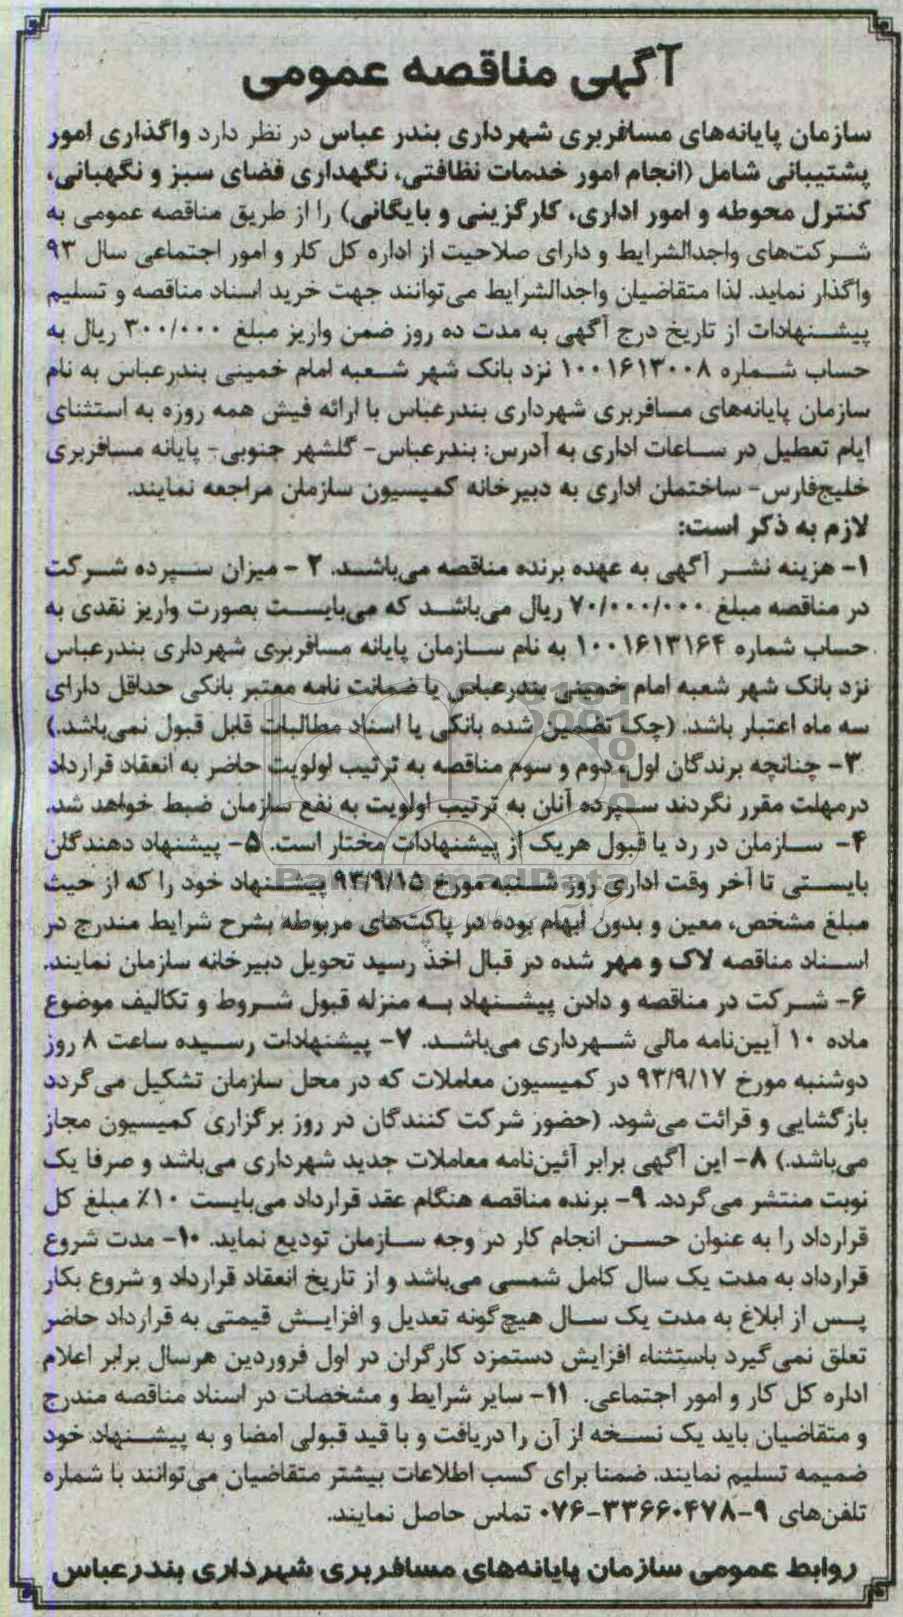 آگهی مناقصه عمومی
سازمان پایانه‌های مسافربری شهرداری بندر عباس در نظر دارد واگذاری امور
پشتیبانی شامل (انجام امور خدمات نظافتی، نگهداری فضای سبز و نگهبانی،
کنترل محوطه و امور اداری، کارگزینی و بایگانی) را از طریق مناقصه عمومی به
شرکت‌های واجدالشرایط و دارای صلاحیت از اداره کل کار و امور اجتماعی سال ۹۳
واگذار نماید. لذا متقاضیان واجدالشرایط می‌توانند جهت خرید اسناد مناقصه و تسلیم
پیشنهادات از تاریخ درج آگهی به مدت ده روز ضمن واریز مبلغ ۳۰۰/۰۰۰ ریال به
حساب شماره ۱۰۰۱۶۱۳۰۰۸ نزد بانک شهر شعبه امام خمینی بندرعباس به نام
سازمان پایانه‌های مسافربری شهرداری بندرعباس با ارائه فیش همه روزه به استثنای
ایام تعطیل در ساعات اداری به آدرس: بندرعباس- گلشهر جنوبی- پایانه مسافربری
خلیج‌فارس- ساختمان اداری به دبیرخانه کمیسیون سازمان مراجعه نمایند.
لازم به ذکر است:
۱- هزینه نشر آگهی به عهده برنده مناقصه می‌باشد. ۲- میزان سپرده شرکت
در مناقصه مبلغ ۷۰/۰۰۰/۰۰۰ ریال می‌باشد که می‌بایست بصورت واریز نقدی به
حساب شماره ۱۰۰۱۶۱۳۱۶۴ به نام سازمان پایانه مسافربری شهرداری بندرعباس
نزد بانک شهر شعبه امام خمینی بندرعباس یا ضمانت نامه معتبر بانکی حداقل دارای
سه ماه اعتبار باشد. (چک تضمین شده بانکی یا اسناد مطالبات قابل قبول نمی‌باشد.)
۳- چنانچه برندگان اول، دوم و سوم مناقصه به ترتیب اولویت حاضر به انعقاد قرارداد
درمهلت مقرر نگردند سپرده آنان به ترتیب اولویت به نفع سازمان ضبط خواهد شد.
۴- سازمان در رد یا قبول هریک از پیشنهادات مختار است. ۵- پیشنهاد دهندگان
بایستی تا آخر وقت اداری روز شنبه مورخ ۹۳/۹/۱۵ پیشنهاد خود را که از حیث
مبلغ مشخص، معین و بدون ابهام بوده در پاکت‌های مربوطه بشرح شرایط مندرج در
اسناد مناقصه لاک و مهر شده در قبال اخذ رسید تحویل دبیرخانه سازمان نمایند.
۶- شرکت در مناقصه و دادن پیشنهاد به منزله قبول شروط و تکالیف موضوع
ماده ۱۰ آیین‌نامه مالی شهرداری می‌باشد. ۷- پیشنهادات رسیده ساعت ۸ روز
دوشنبه مورخ ۹۳/۹/۱۷ در کمیسیون معاملات که در محل سازمان تشکیل می‌گردد
بازگشایی و قرائت می‌شود. (حضور شرکت کنندگان در روز برگزاری کمیسیون مجاز
می‌باشد.) ۸- این آگهی برابر آئین‌نامه معاملات جدید شهرداری می‌باشد و صرفا یک
نوبت منتشر می‌گردد. ۹- برنده مناقصه هنگام عقد قرارداد می‌بایست ۱۰٪ مبلغ کل
قرارداد را به عنوان حسن انجام کار در وجه سازمان تودیع نماید. ۱۰- مدت شروع
قرارداد به مدت یک سال کامل شمسی می‌باشد و از تاریخ انعقاد قرارداد و شروع بکار
پس از ابلاغ به مدت یک سال هیچ‌گونه تعدیل و افزایش قیمتی به قرارداد حاضر
تعلق نمی‌گیرد باستثناء افزایش دستمزد کارگران در اول فروردین هرسال برابر اعلام
اداره کل کار و امور اجتماعی. ۱۱- سایر شرایط و مشخصات در اسناد مناقصه مندرج
و متقاضیان باید یک نسخه از آن را دریافت و با قید قبولی امضا و به پیشنهاد خود
ضمیمه تسلیم نمایند. ضمنا برای کسب اطلاعات بیشتر متقاضیان می‌توانند با شماره
تلفن‌های ۹-۳۳۶۶۰۴۷۸-۰۷۶ تماس حاصل نمایند.
روابط عمومی سازمان پایانه‌های مسافربری شهرداری بندرعباس